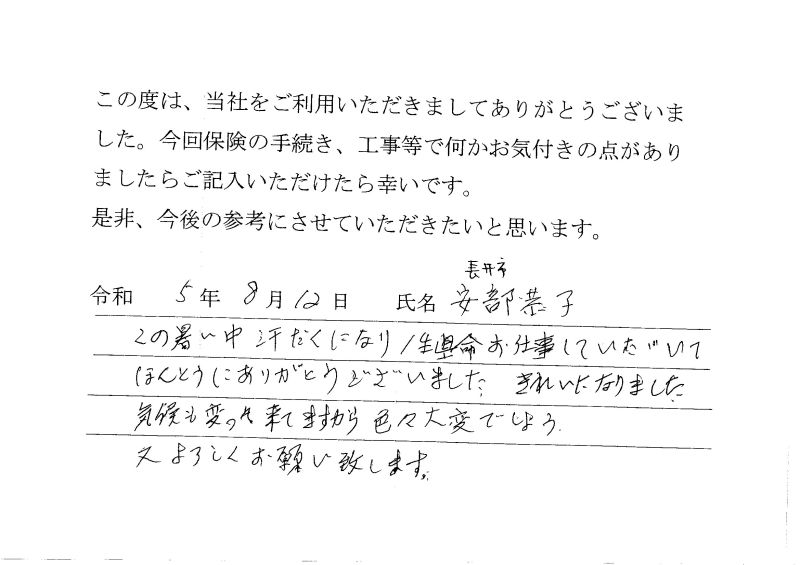 この度は、当社をご利用いただきましてありがとうございま
した。今回保険の手続き、工事等で何かお気付きの点があり
ましたらご記入いただけたら幸いです。
是非、今後の参考にさせていただきたいと思います。
長井市
令和 5年 8月12日 氏名 安部恭子
この暑い中 汗だくになり 1生懸命お仕事していただいて
ほんとうにありがとうございました。きれいになりました
気候も変って来てますから色々大変でしょう。
又よろしくお願い致します。